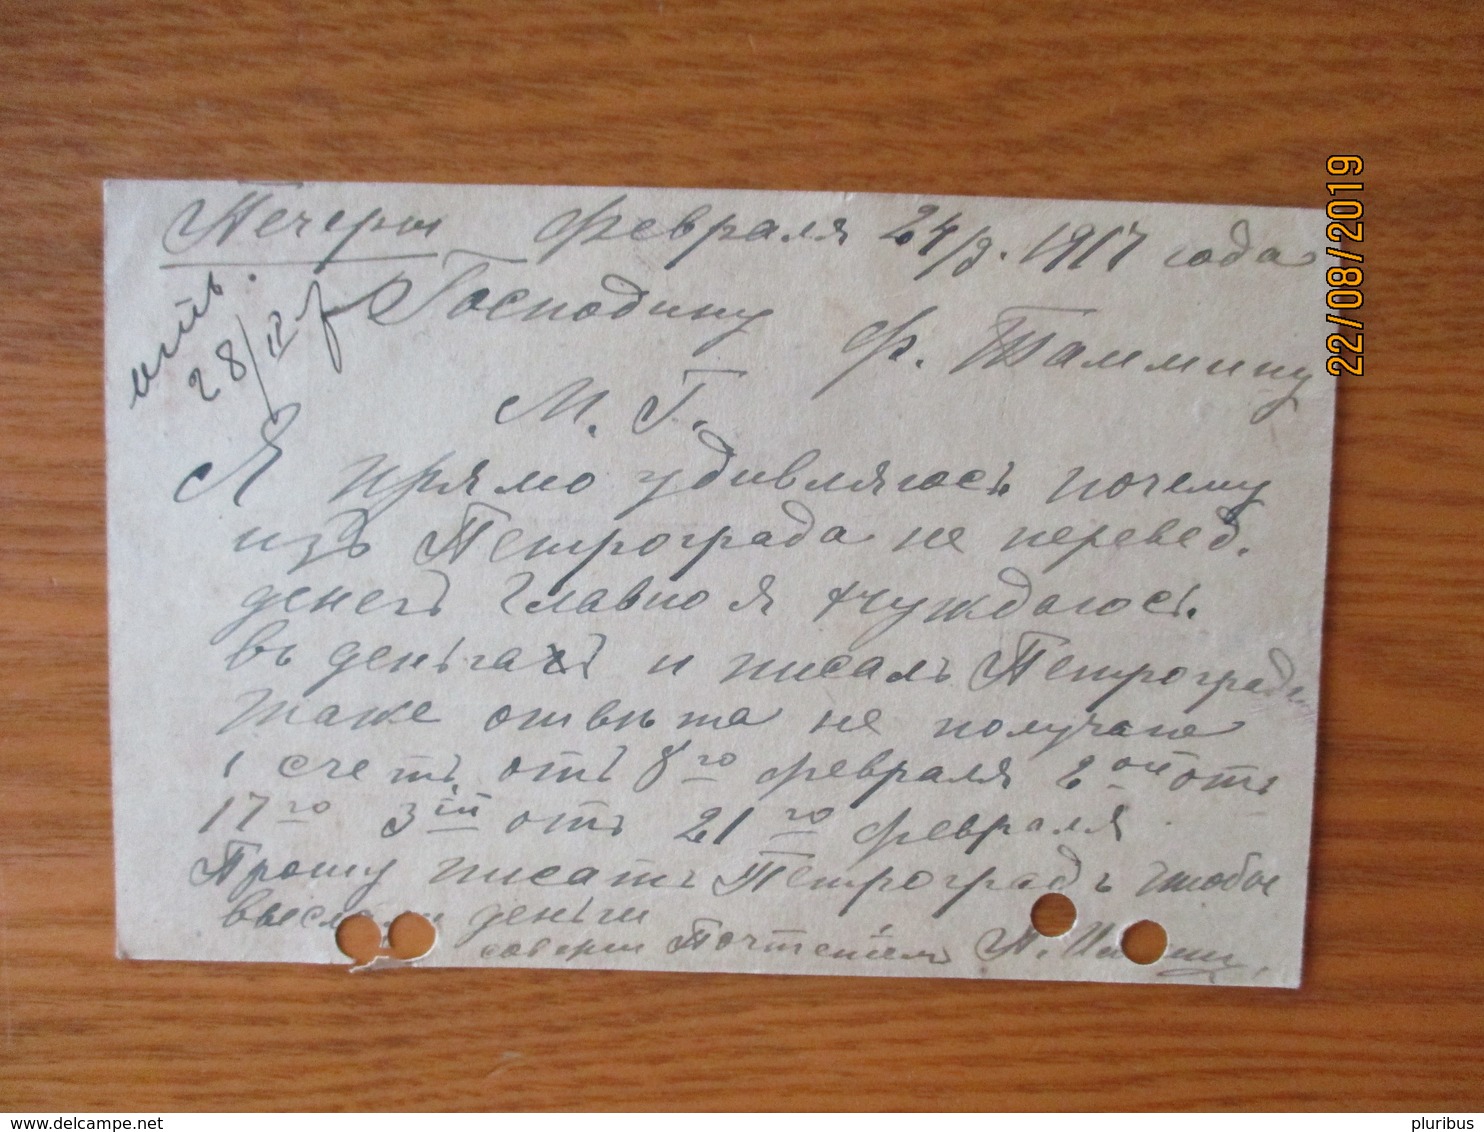 Печеры Февраля 24/9. 1917 года
28/II
Господину
Ф. Таммину
М. Г.
Я прямо удивляюсь почему
изъ Петрограда не перевед.
денегъ главно я нуждаюсь.
въ деньгахъ и писалъ Петроградъ
таке отвѣта не получаю
1 счетъ отъ 8го февраля 2ой отъ
17го 3ій отъ 21го февраля
Прошу писать Петроградъ чтобы
выслали деньги
соверш Почтеніем П.
22/08/2019
pluribus
www.delcampe.net